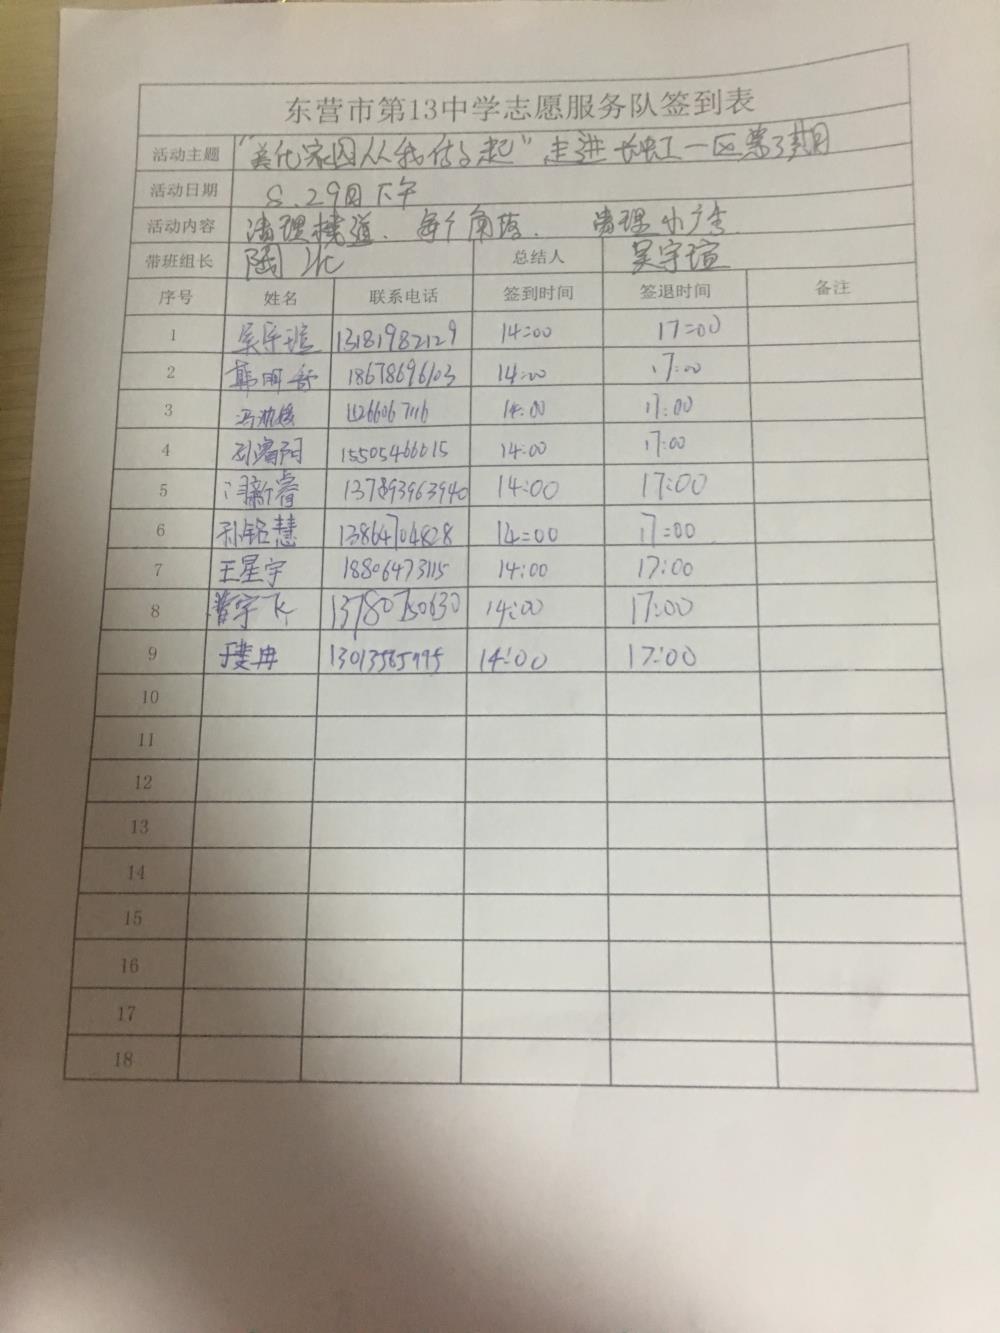 东营市第13中学志愿服务队签到表
活动主题 "美化家园从我做起" 走进 一区第3期
活动日期 8.29日下午
活动内容 清理楼道、每个角落、 清理小广告
带班组长 陶 总结人 吴宇瑄
序号 姓名 联系电话 签到时间 签退时间 备注
1 吴宇瑄 13181982129 14:00 17:00
2 韩明 18678696103 14:00 17:00
3 冯 14:00 17:00
4 阳 15505466015 14:00 17:00
5 新睿 137893963940 14:00 17:00
6 孙铭慧 13864704828 14:00 17:00
7 王星宇 18806473115 14:00 17:00
8 宇飞 13780750630 14:00 17:00
9 冉 14:00 17:00
10
11
12
13
14
15
16
17
18